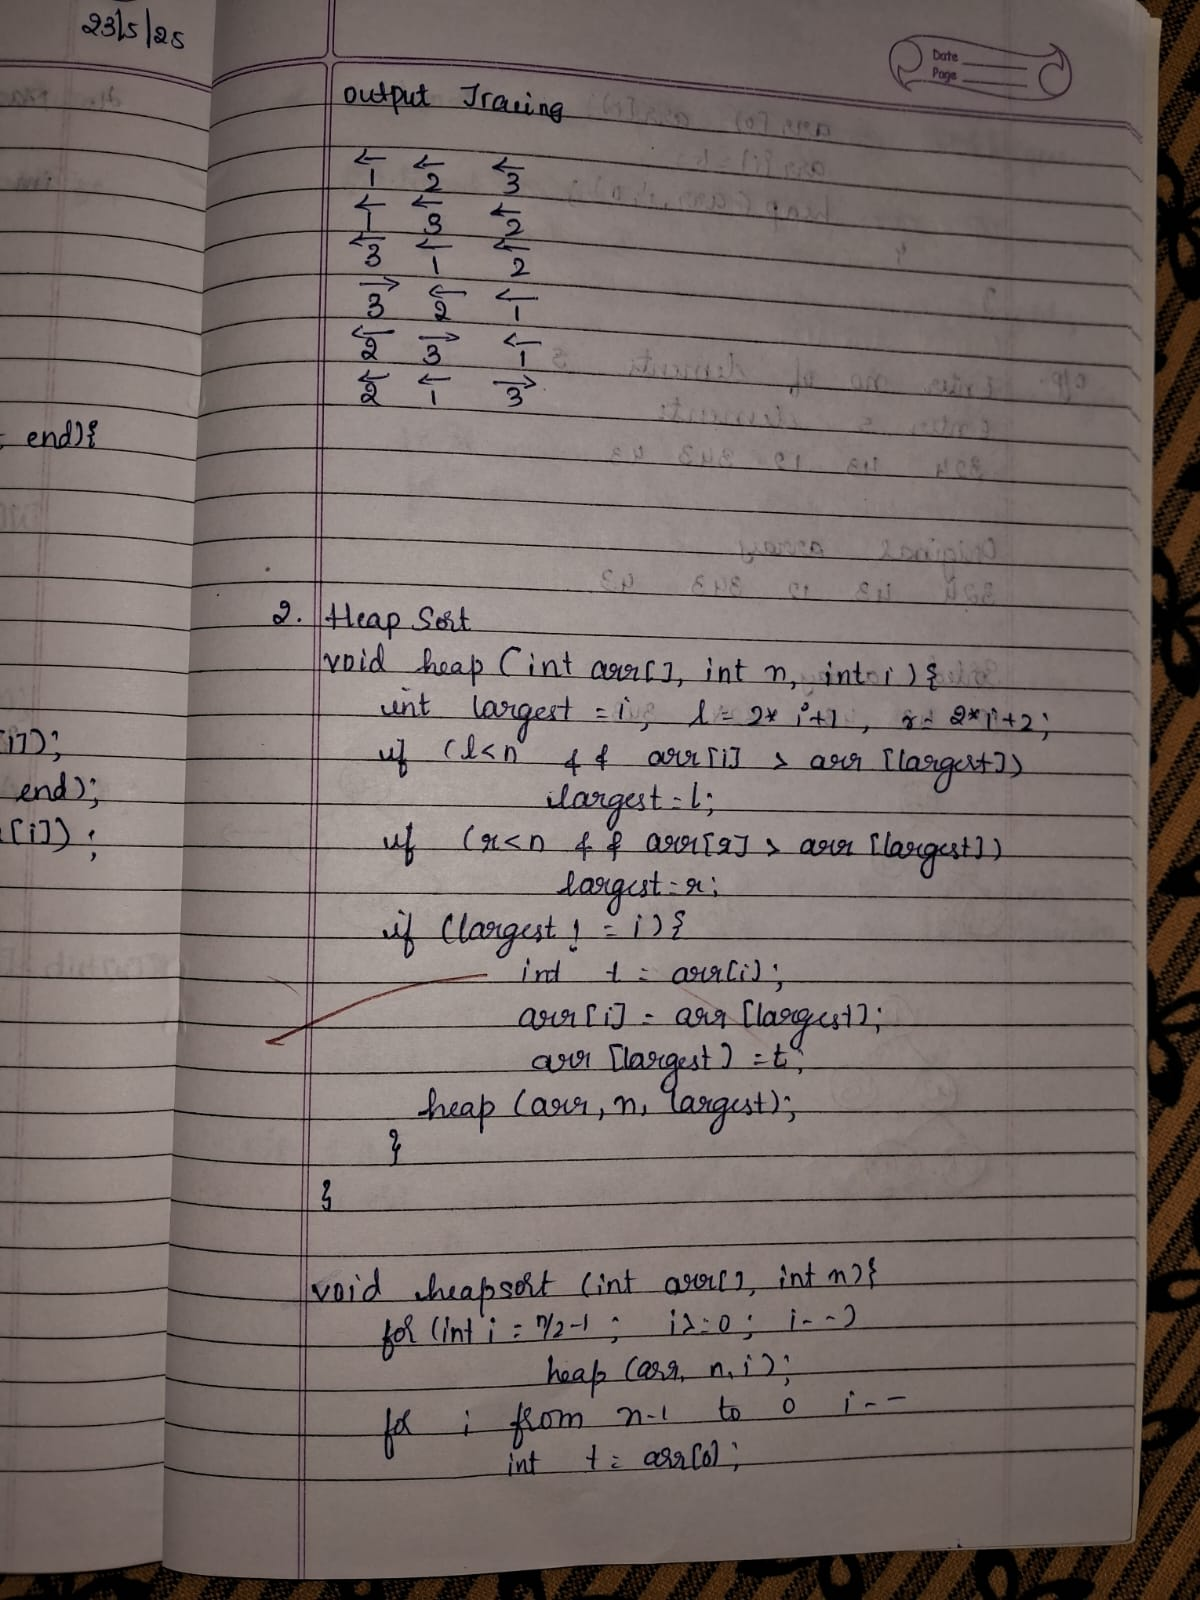 23/5/25
end){
[i]);
end);
[i]);
Date
Page
output Tracing
← ← ←
1 2 3
← ← ←
1 3 2
← ← ←
3 1 2
→ ← ←
3 2 1
← → ←
2 3 1
← ← →
2 1 3
2. Heap Sort
void heap (int arr[], int n, int i){
int largest = i, l = 2* i+1, r = 2*i+2;
if (l<n && arr[i] > arr [largest])
largest = l;
if (r<n && arr[r] > arr [largest])
largest = r;
if (largest != i){
int t = arr[i];
arr[i] = arr [largest];
arr [largest] = t;
heap (arr, n, largest);
}
}
void heapsort (int arr[], int n){
for (int i = n/2-1; i>=0; i--)
heap (arr, n, i);
for i from n-1 to 0 i--
int t = arr[0];